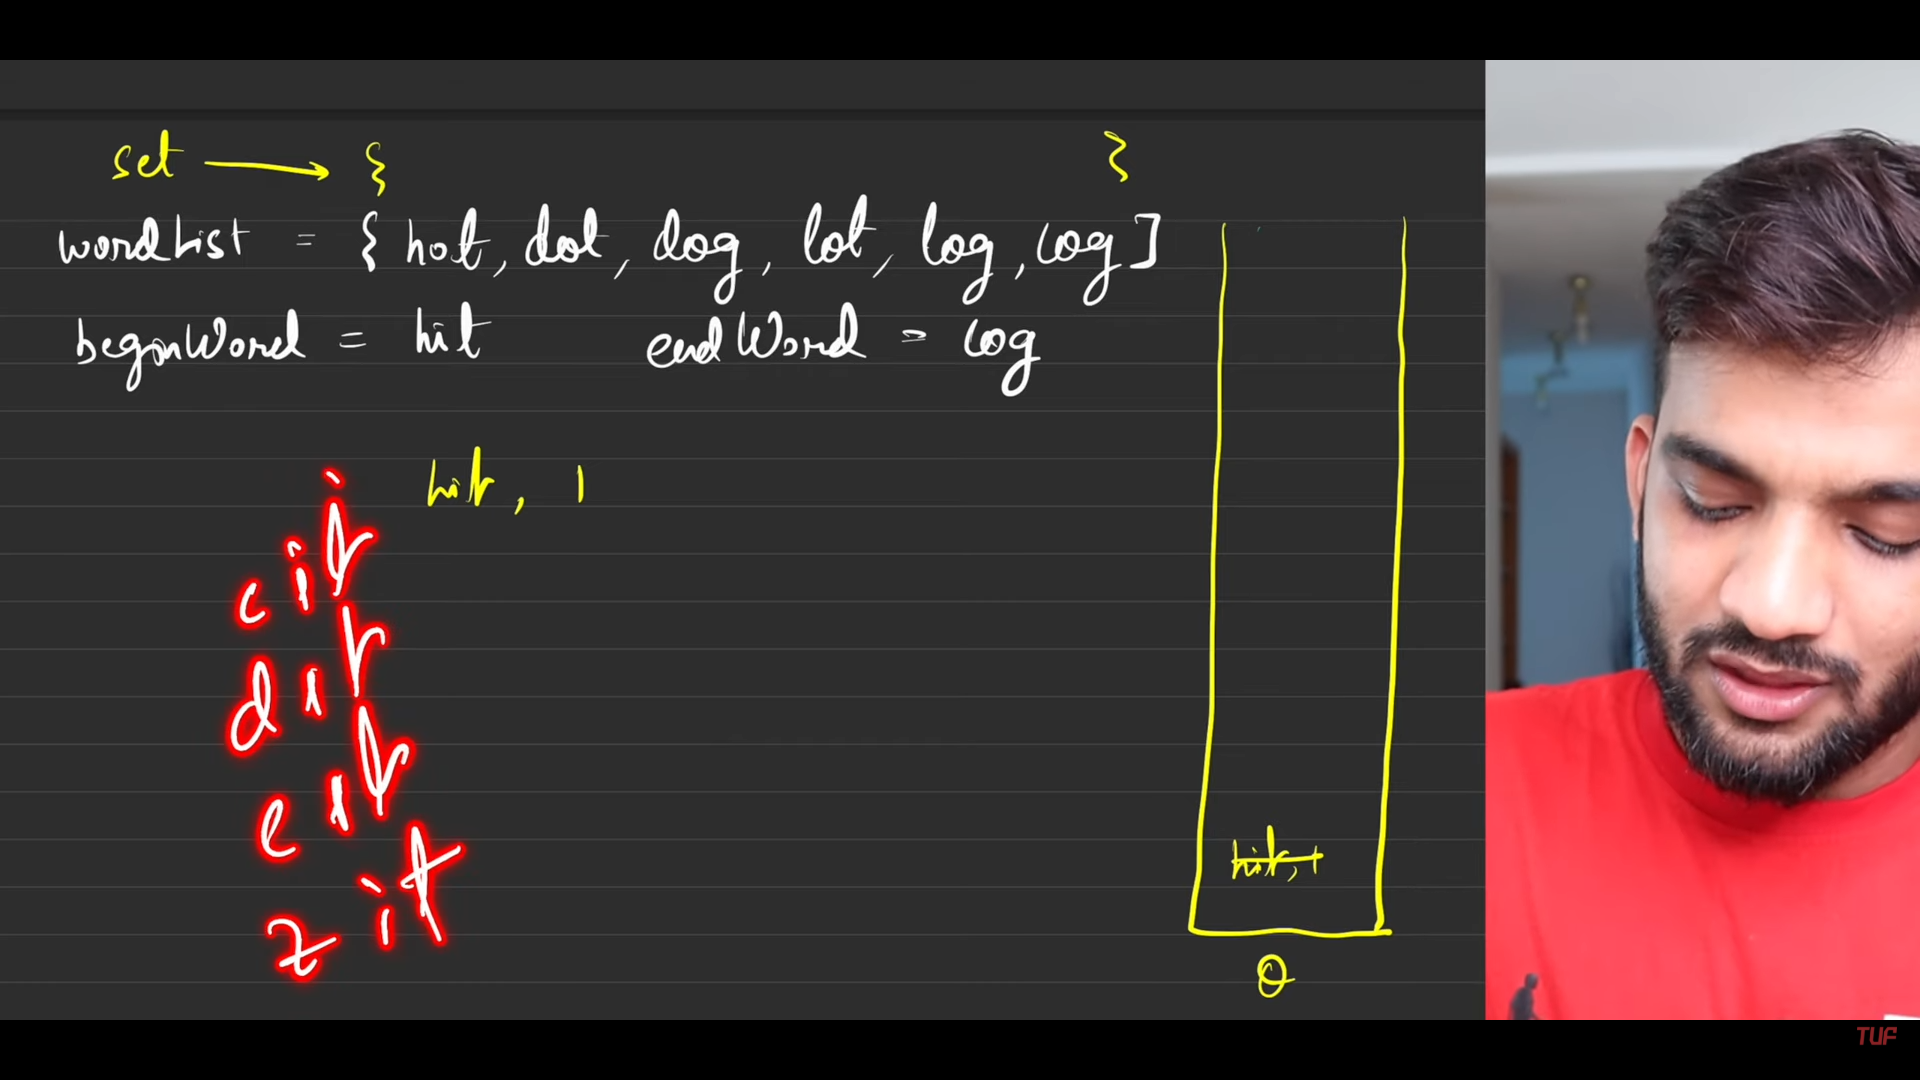 set → { }
wordList = { hot, dot, dog, lot, log, cog ]
beginWord = hit endWord = cog
hit, 1
i
cit
dit
eit
zit
hit, 1
Q
TUF